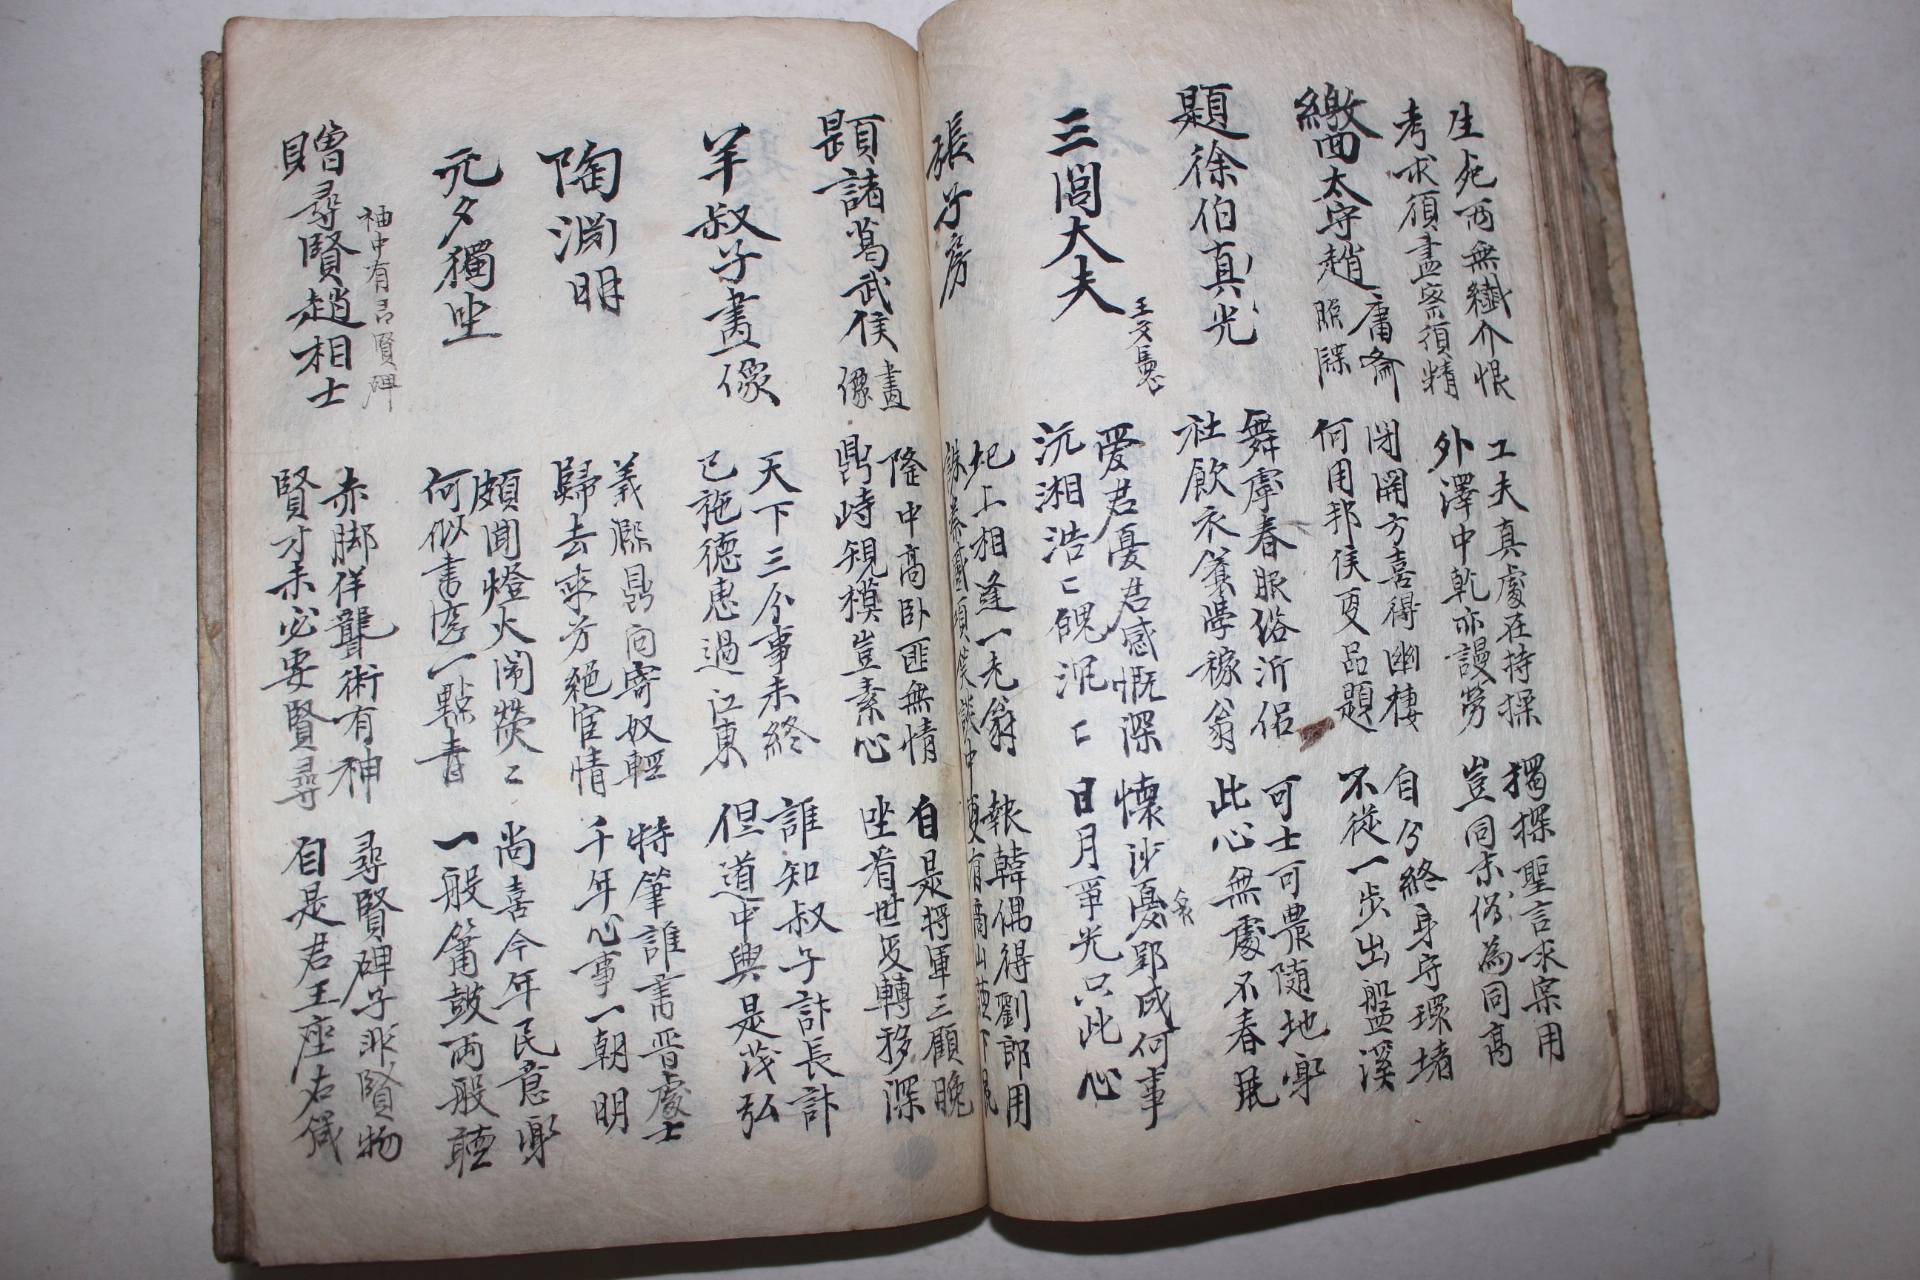 生死兩無纖介恨
考求須盡察須精
工夫真處在持操
外澤中乾亦謾勞
獨探聖言求宲用
豈同末俗為同高
繳回太守趙庸齋照牒
閉關方喜得幽棲
何用邦侯更品題
自分終身守環堵
不從一步出盤溪
題徐伯真光
舞雩春服俗沂侶
社飲衣養學稼翁
可士可農隨地寧
此心無處不春風
三閭大夫
王文憲
愛君憂君感慨深
沅湘浩〻魄沉〻
懷沙憂郢成何事
日月爭光只此心
張子房
圯上相逢一老翁
報韓偶得劉郎用
題諸葛武侯畫像
隆中高卧匪無情
鼎峙規模豈素心
自是將軍三顧晚
坐看世變轉移深
羊叔子畫像
天下三分事未終
已施德惠過江東
誰知叔子計長計
但道中興是茂弘
陶淵明
羲凞鼎向寄奴輕
歸去來兮絕宦情
特筆誰書晋處士
千年心事一朝明
元夕獨坐
頗聞燈火閙熒〻
何似書窓一點青
尚喜今年民意寧
一般簫鼓兩般聽
贈尋賢趙相士
袖中有尋賢碑
赤脚佯聾術有神
賢才未必要賢尋
尋賢碑子非賢物
自是君王座右箴